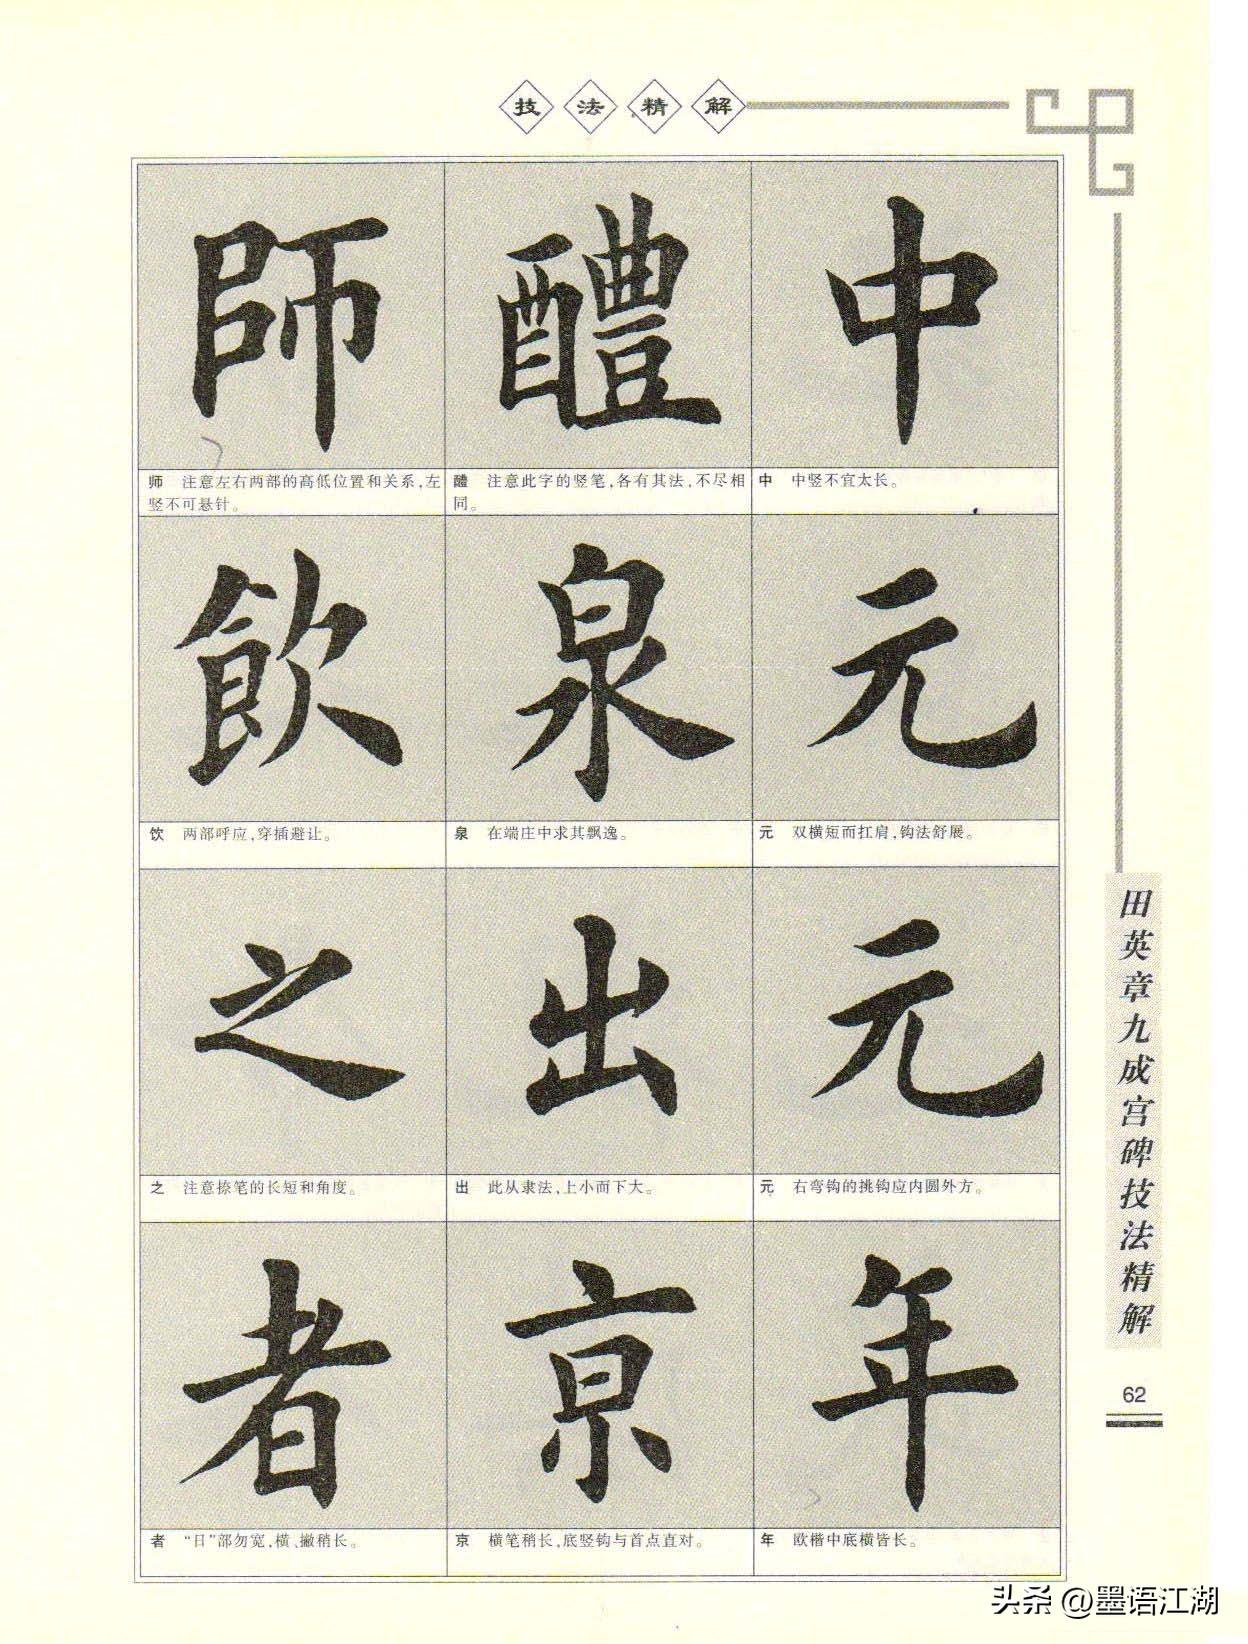 技法精解
師
醴
中
师 注意左右两部的高低位置和关系,左
竖不可悬针。
醴 注意此字的竖笔,各有其法,不尽相
同。
中 中竖不宜太长。
飲
泉
元
饮 两部呼应,穿插避让。
泉 在端庄中求其飘逸。
元 双横短而扛肩,钩法舒展。
之
出
元
之 注意捺笔的长短和角度。
出 此从隶法,上小而下大。
元 右弯钩的挑钩应内圆外方。
者
京
年
者 “日”部勿宽,横、撇稍长。
京 横笔稍长,底竖钩与首点直对。
年 欧楷中底横皆长。
田英章九成宫碑技法精解
62
头条 @墨语江湖